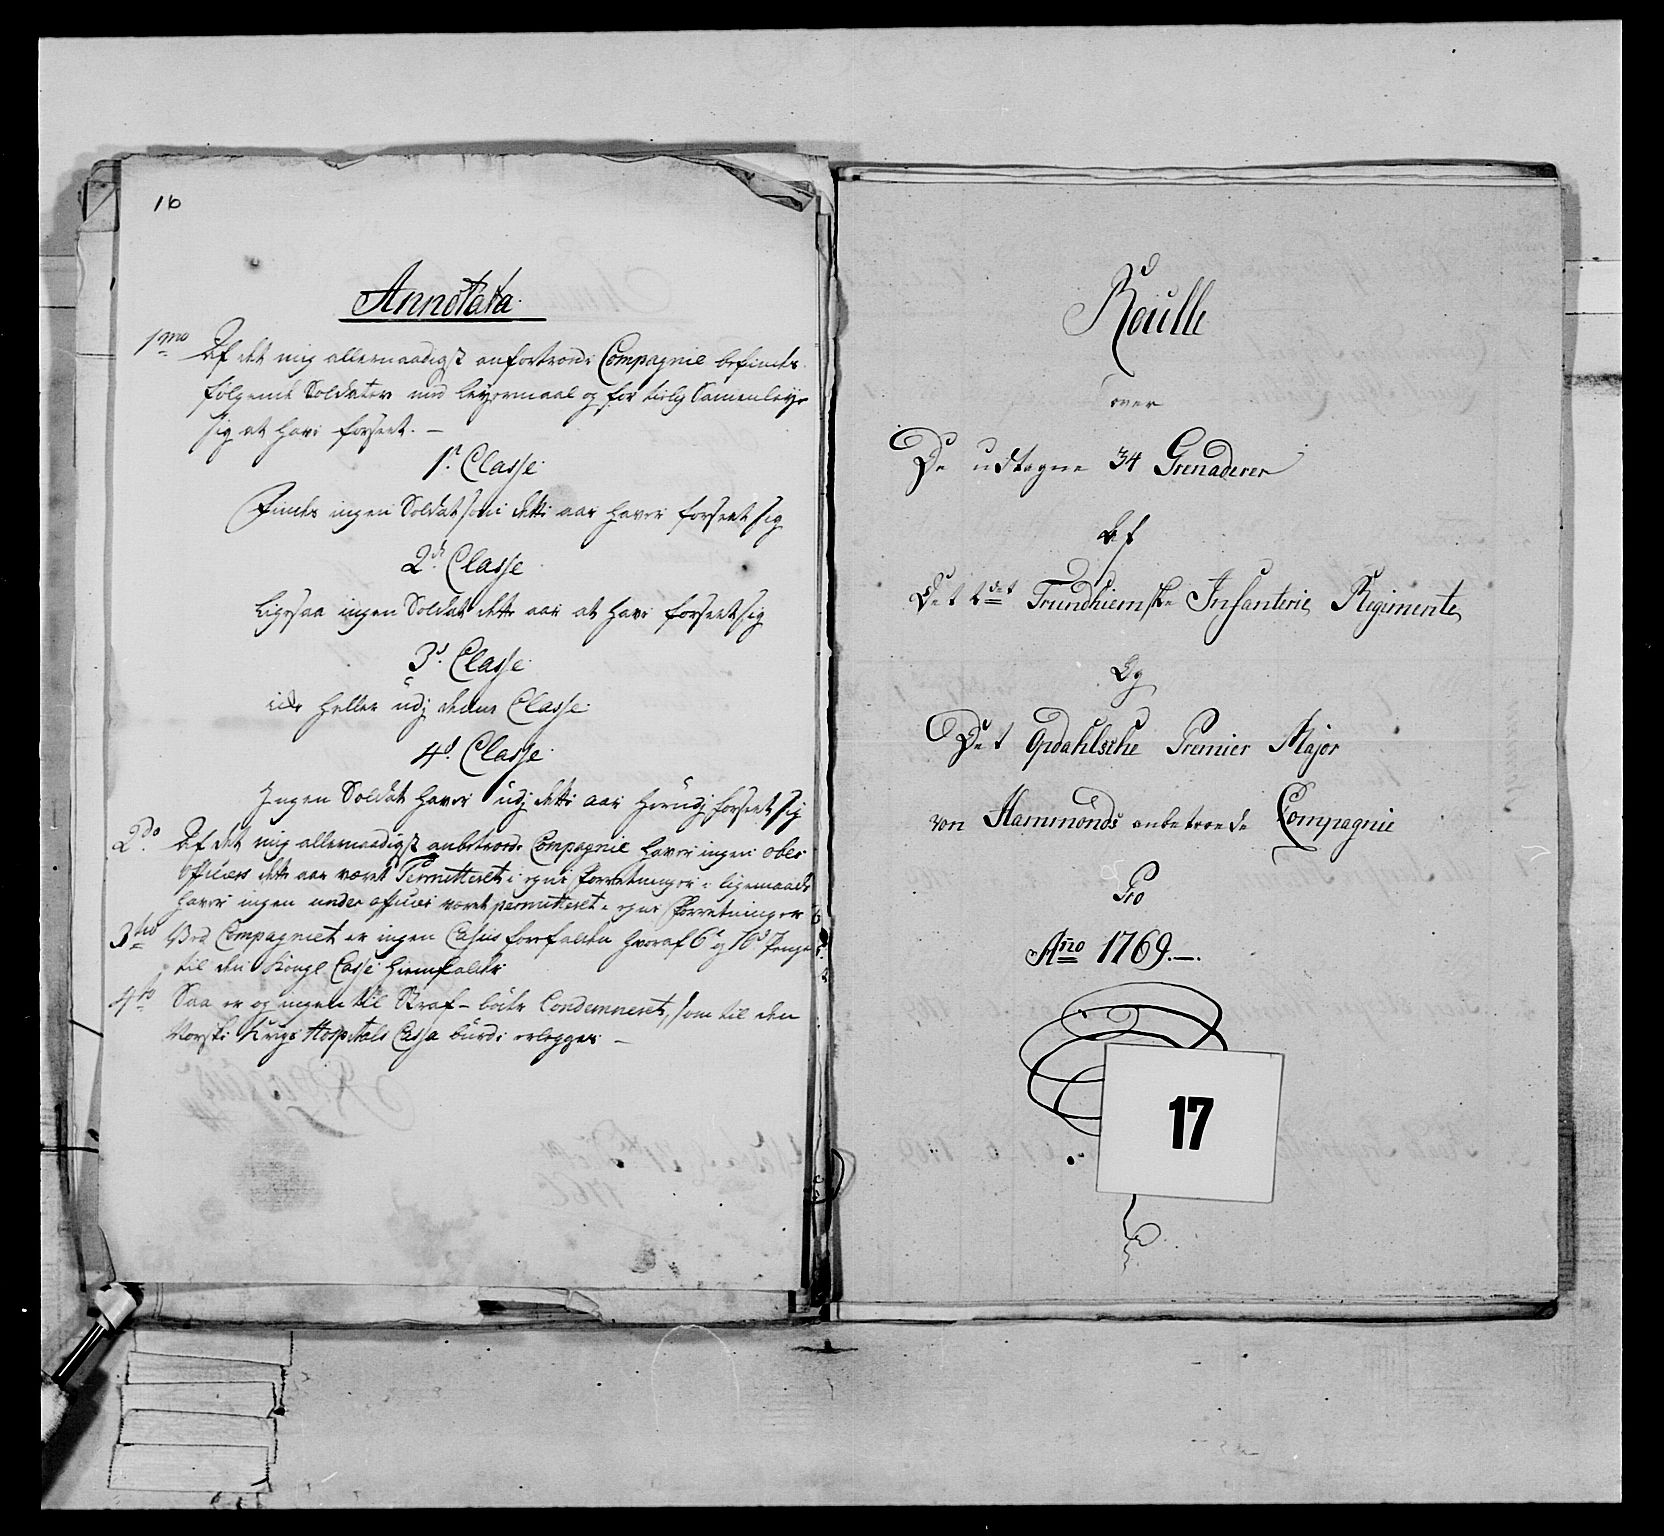 16
Annotata
1mo Af det mig allernaadigst anfortroede Compagnie befindes
følgende Soldater med Leyermaal og for tirlig Samenleye
sig at have forseet. —
1e Classe
Findes ingen Soldat som dette aar haver forseet sig
2de Classe
Ligesaa ingen Soldat dette aar at have forseet sig
3e Classe
heller udj denne Classe
4de Classe
Ingen Soldat haver udj dette aar herudj forseet sig
2do Af det mig allernaadigst anbetroede Compagnie haver ingen ober
officiers dette aar været Permitteret i egne Forretninger, ligemaade
haver ingen under officier været permitteret i egne Forretninger
3tio Ved Compagniet er ingen Casus forefalden hvoraf 6te og 16de Penge
til den Kongl Casse
4to Saa er og ingen til Straf-bøder Condemneret, som til den
Norske Krigs Hospitals Cassa burde erlegges —
Roulle
over
De udtagne 34 Grenaderer
Af
Det 2det Trundhiemske Infanterie Regimente
Og
Det Opdahlsche Premier Major
von Hammonds anbetroede Compagnie
Pro
Año 1769.—.
17